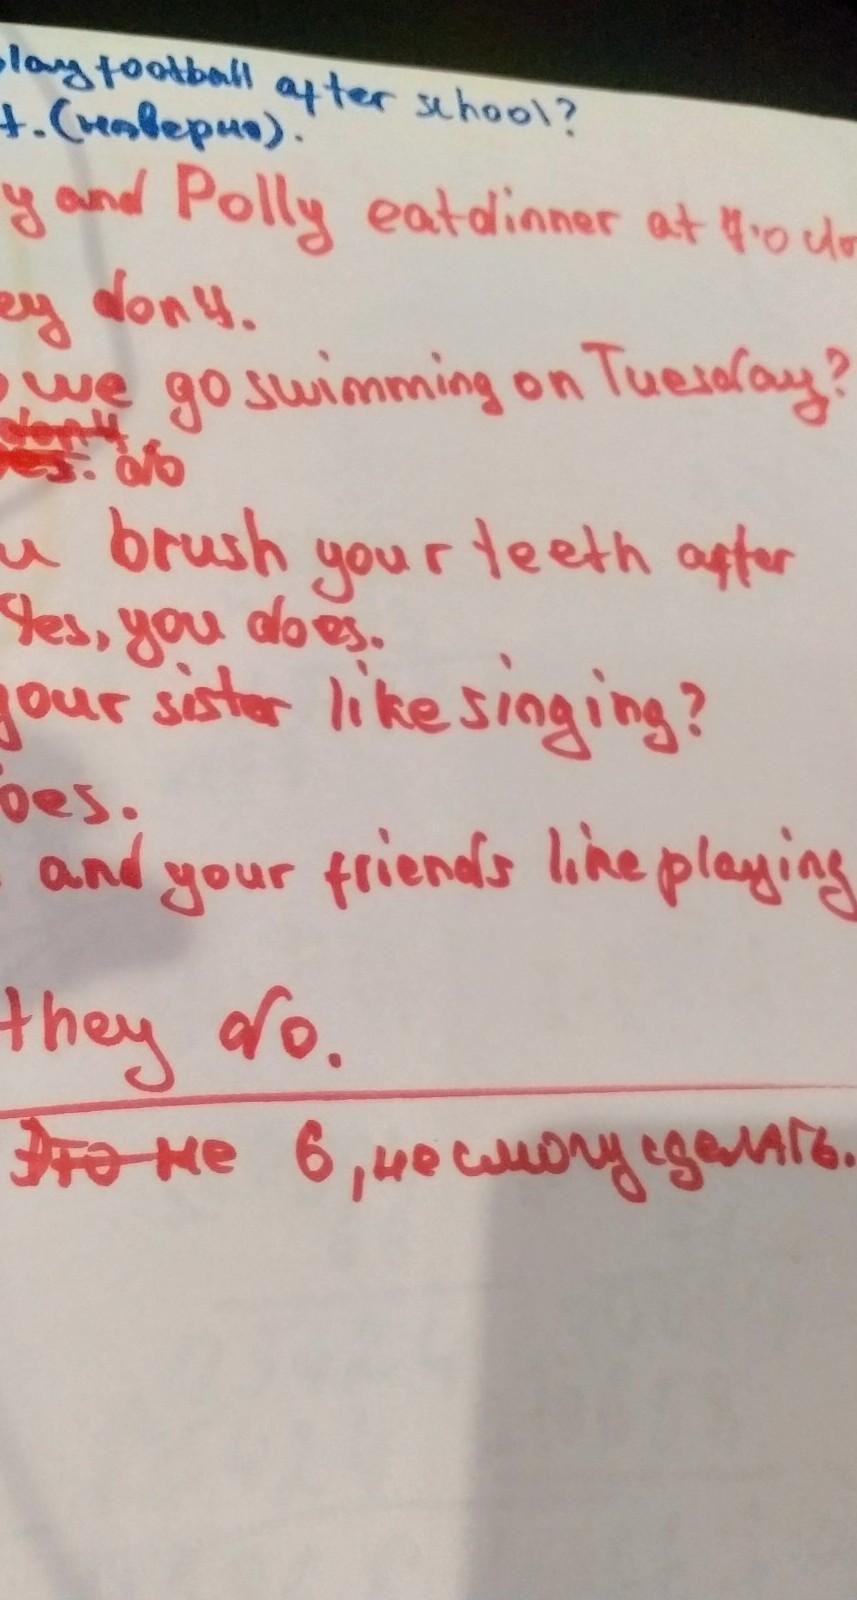 play football after school?
t. (наверно).
y and Polly eat dinner at
ey don't.
we go swimming on Tuesday?
do
u brush your teeth after
Yes, you does.
your sister like singing?
oes.
and your friends like playing
they do.
Это не 6, не смогу сделать.